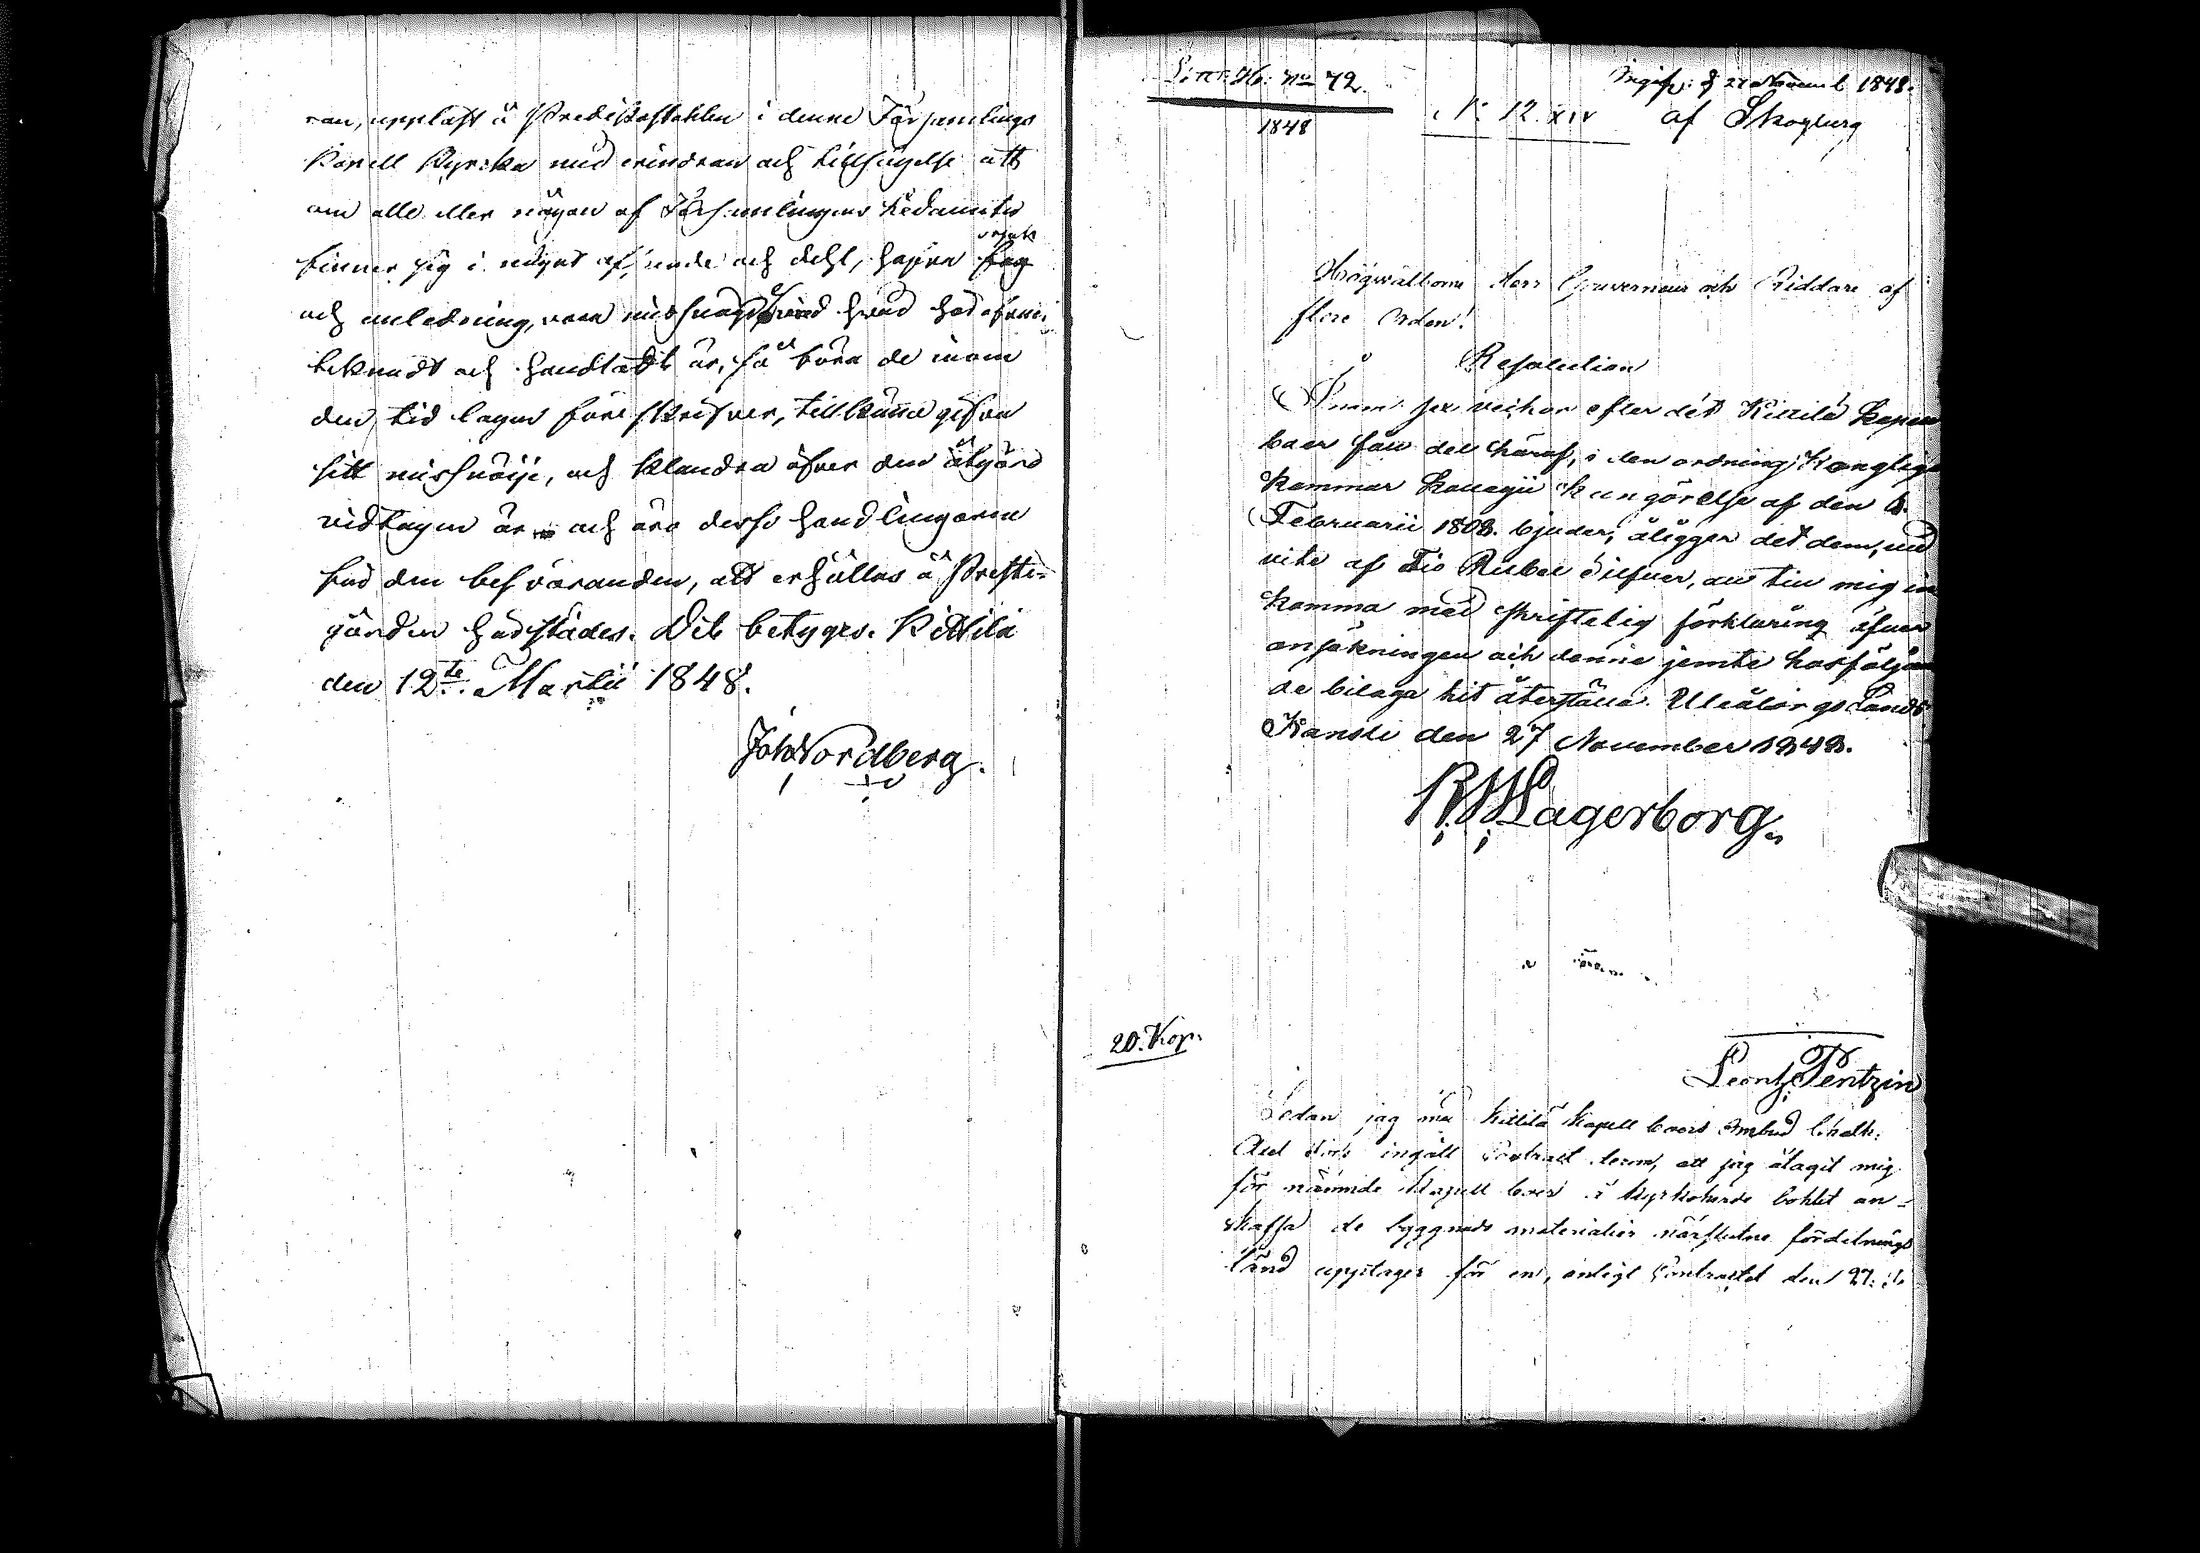 ran, uppläst å Predikostohlen i denne Församlings
Kapell Kyrcka med erindran och tillsägelse att
om alle eller någon af Församlingens Ledamöter
finner sig i något af, ende och dehl, hafva orsak
och anledning, vara missnögd med hvad häd
beknadt och handladt är, så böra de inom
den tid lagen föreskrifver, tillkänna gifva
sitt missnöije, och klandra öfver den åtgärd
vidtagen är och äro desse handlingarne
för den besväranden, att erhållas å Preste-
gården härstädes. Det betyges. Kittilä
den 12te Martii 1848.
Joh. Nordberg.
Litt. Hr. No 72.
1848
Ingifv. d 27 Novemb 1848.
N: 12 XIV af Skogberg
Högvälborne Herr Gouverneur och Riddare af
flere Orden!
Resolution
Innom sex veckor efter det Kittilä Kapell
boer fått del häraf, i den ordning Kongliga
Kammar Kollegii kungörelse af den
Februarii 1808. bjuder, åligger det dem, vid
vite af Tio Rubel Silfver, att till mig in
komma med skriftelig förklaring öfver
ansökningen och denne jemte hosföljan
de bilaga hit återställa. Uleåborgs Lands
Kansli den 27 November 1848.
R W Lagerborg.
20. Kop.
Leontj Pentzin
Sedan jag med Kittilä Kapell boers Ombud
ingått Contract derom, att jag åtagit mig
för nämnde Kapell boer i Kyrkoherde bohlet an-
skaffa de byggnads materialier
uppstager för en, enligt Contractet den 27: